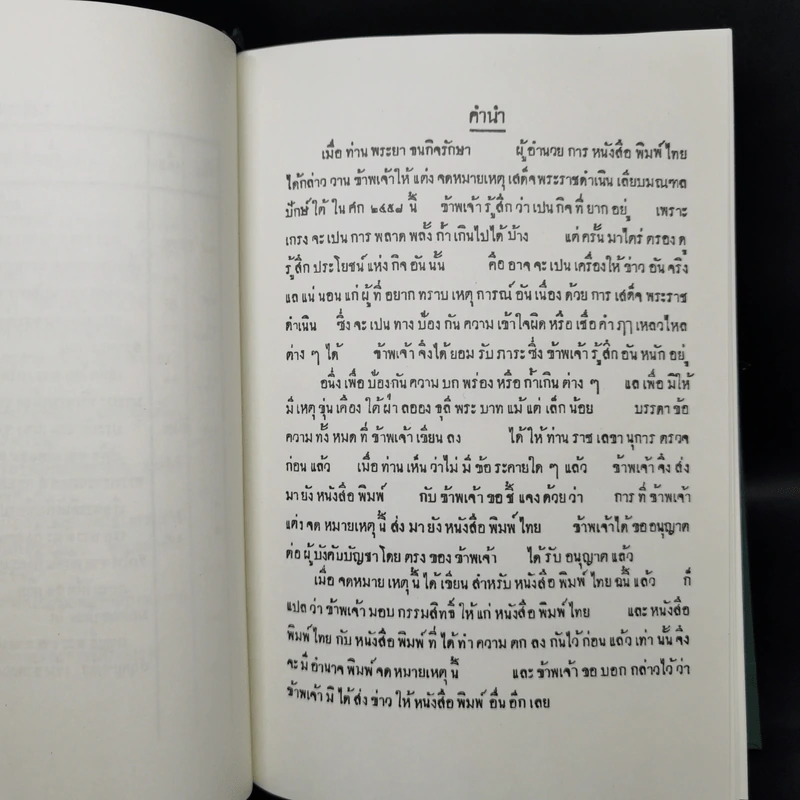 คำนำ
เมื่อ ท่าน พระยา ชนกิจรักษา ผู้ อำนวย การ หนังสือ พิมพ์ ไทย
ได้กล่าว วาน ข้าพเจ้าให้ แต่ง จดหมายเหตุ เสด็จ พระราชดำเนิน เลียบมณฑล
ปักษ์ ใต้ ใน ศก ๒๔๕๘ นี้ ข้าพเจ้า รู้สึก ว่า เปน กิจ ที่ ยาก อยู่ เพราะ
เกรง จะ เปน การ พลาด พลั้ง ก้ำ เกินไปได้ บ้าง แต่ ครั้น มาไตร่ ตรอง ดุ
รู้สึก ประโยชน์ แห่ง กิจ อัน นั้น คือ อาจ จะ เปน เครื่องให้ ข่าว อัน จริง
แล แน่ นอน แก่ ผู้ ที่ อยาก ทราบ เหตุ การณ์ อัน เนื่อง ด้วย การ เสด็จ พระราช
ดำเนิน ซึ่ง จะ เปน ทาง ป้อง กัน ความ เข้าใจผิด หรือ เชื่อ คำ ฦๅ เหลวไหล
ต่าง ๆ ได้ ข้าพเจ้า จึงได้ ยอม รับ ภาระ ซึ่ง ข้าพเจ้า รู้ สึก อัน หนัก อยู่
อนึ่ง เพื่อ ป้องกัน ความ บก พร่อง หรือ ก้ำเกิน ต่าง ๆ แล เพื่อ มิให้
มี เหตุ ขุ่น เคือง ใต้ ฝ่า ลออง ธุลี พระ บาท แม้ แต่ เล็ก น้อย บรรดา ข้อ
ความ ทั้ง หมด ที่ ข้าพเจ้า เขียน ลง ได้ ให้ ท่าน ราช เลขา นุการ ตรวจ
ก่อน แล้ว เมื่อ ท่าน เห็น ว่าไม่ มี ข้อ ระคายใด ๆ แล้ว ข้าพเจ้า จึ่ง ส่ง
มา ยัง หนังสือ พิมพ์ กับ ข้าพเจ้า ขอ ชี้ แจง ด้วย ว่า การ ที่ ข้าพเจ้า
แต่ง จด หมายเหตุ นี้ ส่ง มา ยัง หนังสือ พิมพ์ ไทย ข้าพเจ้าได้ ขอ อนุญาต
ต่อ ผู้ บังคับบัญชา โดย ตรง ของ ข้าพเจ้า ได้ รับ อนุญาต แล้ว
เมื่อ จดหมาย เหตุ นี้ ได้ เขียน สำหรับ หนังสือ พิมพ์ ไทย ฉนี้ แล้ว ก็
แปล ว่า ข้าพเจ้า มอบ กรรมสิทธิ์ ให้ แก่ หนังสือ พิมพ์ ไทย และ หนังสือ
พิมพ์ ไทย กับ หนังสือ พิมพ์ ที่ ได้ ทำ ความ ตก ลง กันไว้ ก่อน แล้ว เท่า นั้น จึ่ง
จะ มี อำนาจ พิมพ์ จด หมายเหตุ นี้ และ ข้าพเจ้า ขอ บอก กล่าวไว้ ว่า
ข้าพเจ้า มิ ได้ ส่ง ข่าว ให้ หนังสือ พิมพ์ อื่น อีก เลย